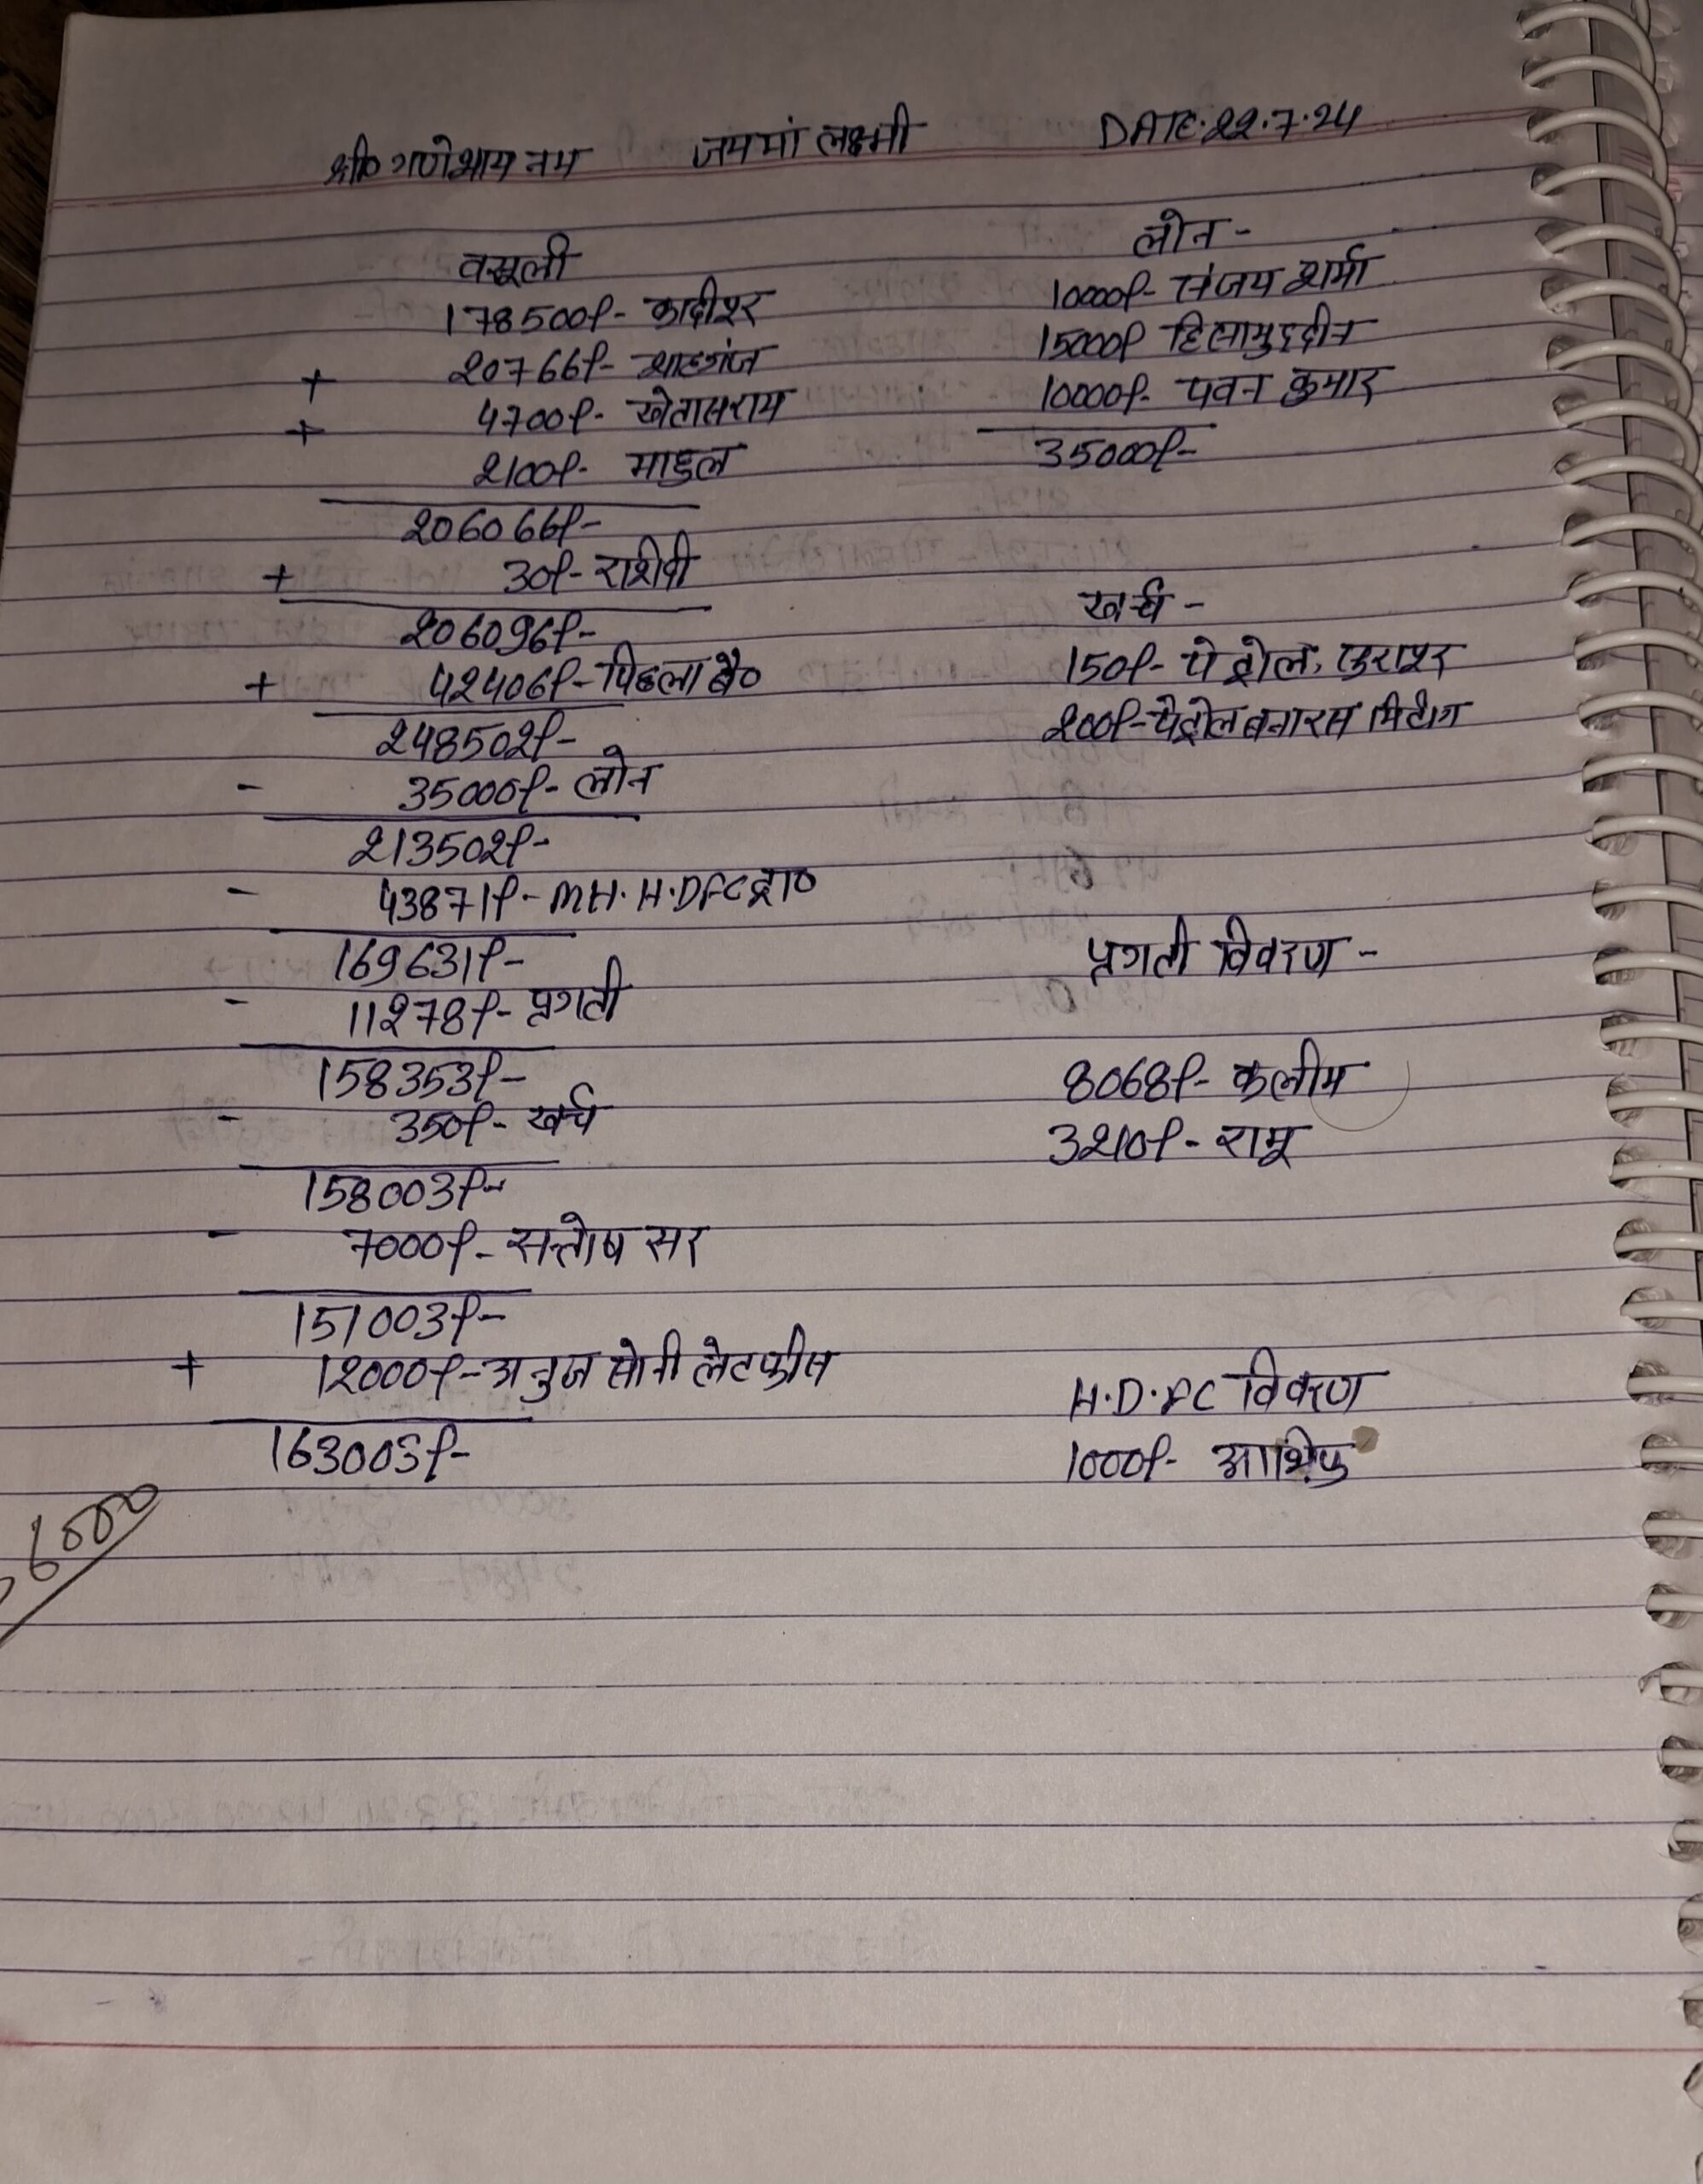 श्री० गणेशाय नम जय मां लक्ष्मी DATE:22.7.24
वसूली
178500/- कादीपुर
20766/- शाहगंज
+ 4700/- खेतासराय
+ 2100/- माहुल
206066/-
+ 30/- रासीदी
206096/-
+ 42406/- पिछला बै०
248502/-
- 35000/- लोन
213502/-
- 43871/- MH. H.DFC द्वा०
169631/-
- 11278/- प्रगती
158353/-
- 350/- खर्च
158003/-
- 7000/- सन्तोष सर
151003/-
+ 12000/- अनुज सोनी लेट फीस
163003/-
6000
लोन -
10000/- संजय शर्मा
15000/- हिसामुद्दीन
10000/- पवन कुमार
35000/-
खर्च -
150/- पेट्रोल,
200/- पेट्रोल बनारस मिटींग
प्रगती विवरण -
8068/- कलीम
3210/- रामू
H.D.FC विवरण
1000/-